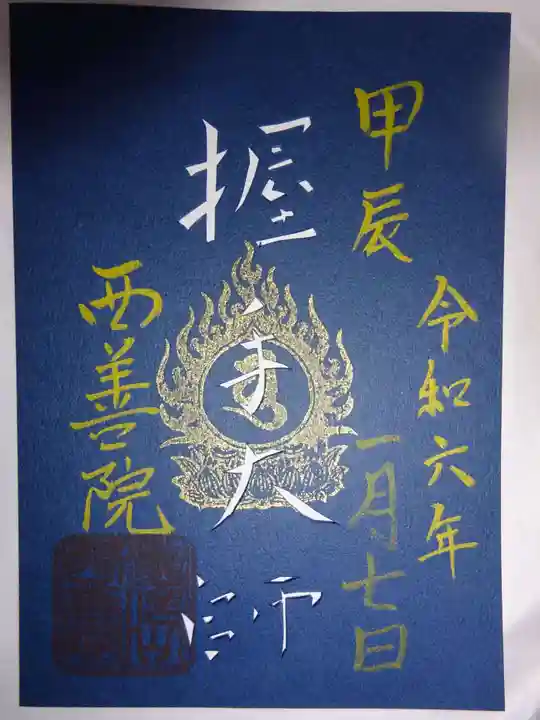 令和六年
甲辰
一月七日
握手大師
西善院